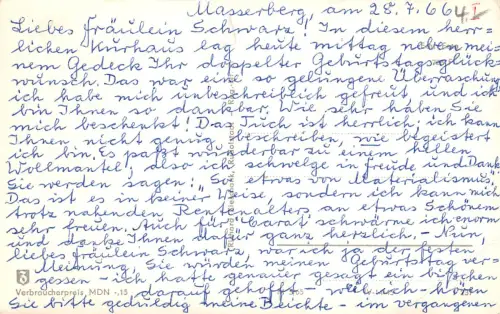 Masserberg, am 28.7.66 4I
Liebes Fräulein Schwarz! In diesem herr-
lichen Kurhaus lag heute mittag neben mei-
nem Gedeck Ihr doppelter Geburtstagsglück-
wunsch. Das war eine so gelungene Überraschung,
ich habe mich unbeschreiblich gefreut und ich
bin Ihnen so dankbar. Wie sehr haben Sie
mich beschenkt! Das Tuch ist herrlich; ich kann
Ihnen nicht genug beschreiben, wie begeistert
ich bin. Es paßt wunderbar zu einem hellen
Wollmantel, also ich schwelge in Freude und Dank.
Sie werden sagen: "So etwas von Materialismus".
Das ist es in keiner Weise, sondern ich kann mich
trotz nahenden Rentenalters an etwas Schönem
sehr freuen. Auch für "barat" schwärme ich enorm
und danke Ihnen dafür ganz herzlich. – Nun,
liebes Fräulein Schwarz, war ich ja der festen
Meinung, Sie würden meinen Geburtstag ver-
gessen – ich hatte genauer gesagt ein bißchen
darauf gehofft – weil ich – hören
Sie bitte geduldig meine Beichte – im vergangenen
Verbraucherpreis MDN -,15